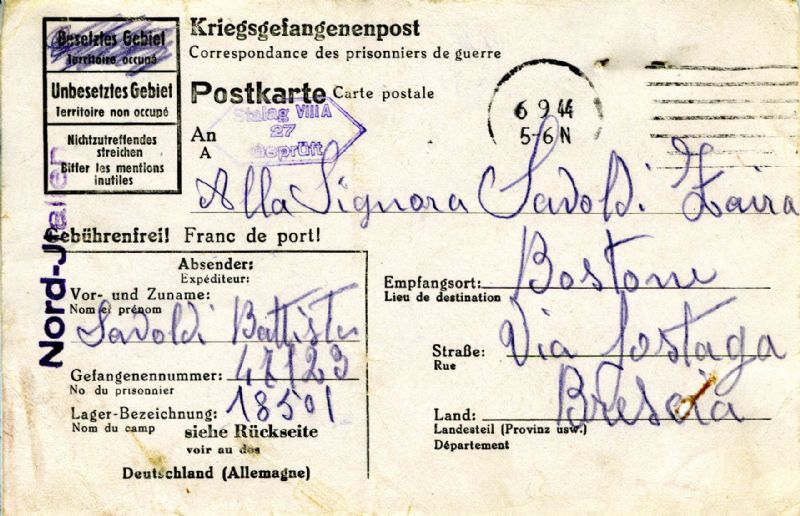 Besetztes Gebiet
Territoire occupé
Unbesetztes Gebiet
Territoire non occupé
Nichtzutreffendes
streichen
Biffer les mentions
inutiles
Kriegsgefangenenpost
Correspondance des prisonniers de guerre
Postkarte Carte postale
Stalag VIII A
27
Geprüft
6 9 44
5-6 N
An
A
Alla Signora Savoldi Zaira
Gebührenfrei! Franc de port!
Nord-Italien
Absender:
Expéditeur:
Vor- und Zuname:
Nom et prénom
Savoldi Battista
Gefangenennummer: 47123
No. du prisonnier
Lager-Bezeichnung: 18501
Nom du camp siehe Rückseite
voir au dos
Deutschland (Allemagne)
Empfangsort: Bostone
Lieu de destination
Straße: Via
Rue
Land: Brescia
Landesteil (Provinz usw.)
Département